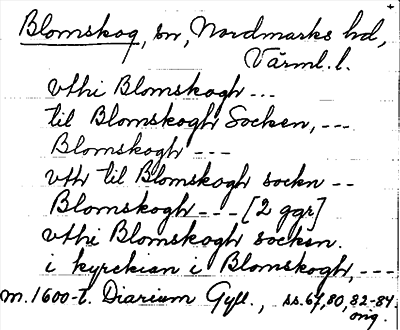 Blomskog, sn, Nordmarks hd,
Värml. l.
vthi Blomskogh ---
til Blomskogh Socken, ---
Blomskogh ---
vthr til Blomskogh sockn --
Blomskogh --- [2 ggr]
vthi Blomskogh socken.
i kyrckian i Blomskogh, ---
m. 1600-t. Diarium Gyll., ss. 67, 80, 82-84
orig.